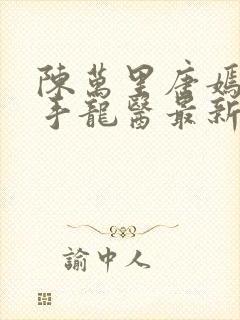 陳萬里唐嫣
手龍醫最新
諭中人